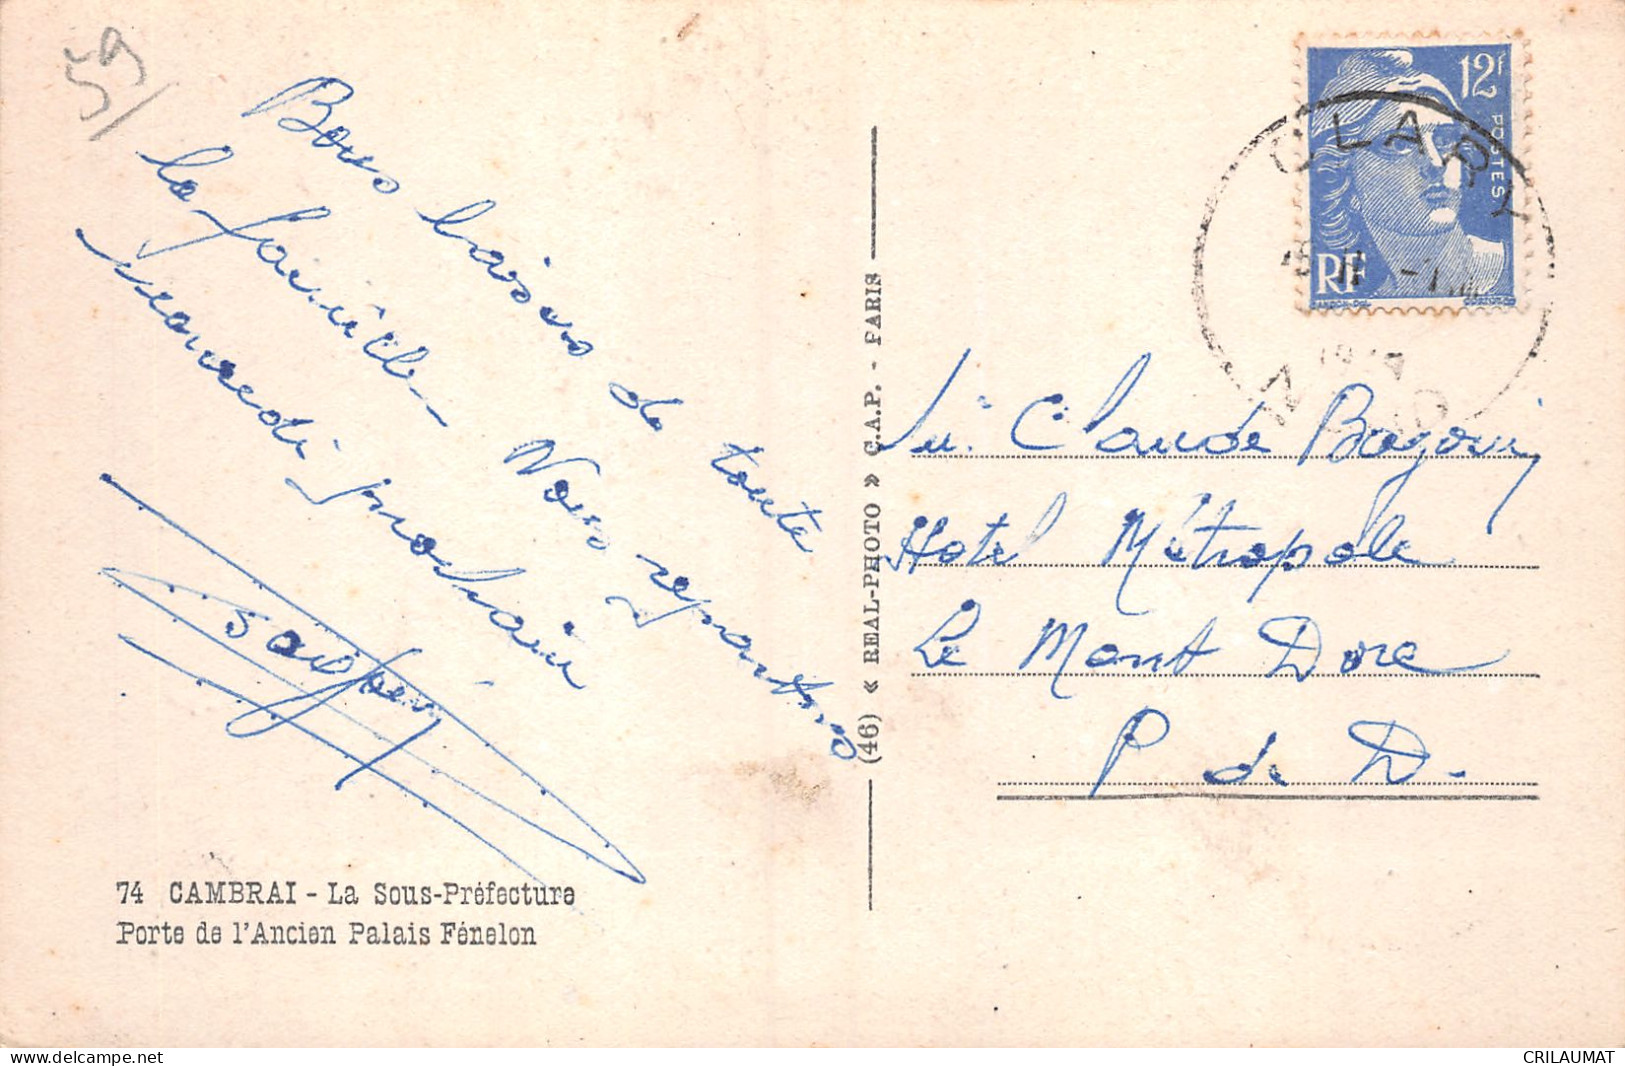 59/
Bons baisers de toute
la famille. Nous repartons
vendredi prochain
74 CAMBRAI - La Sous-Préfecture
Porte de l'Ancien Palais Fénelon
(46) « REAL-PHOTO » C.A.P. - PARIS
12F
POSTES
RF
CLARY
NORD
Claude
Hotel Métropole
Le Mont Dore
P de D.
delcampe.net
CRILAUMAT